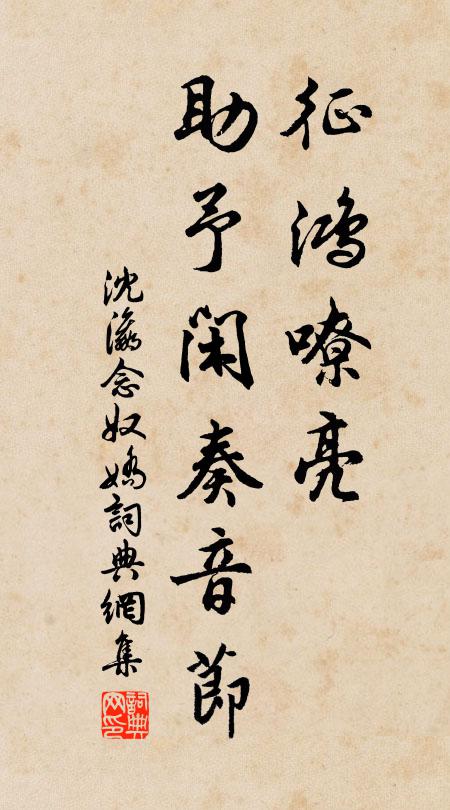 征鴻嘹亮
助予閑奏音節
沈瀛念奴嬌詞典網集
詞典网印